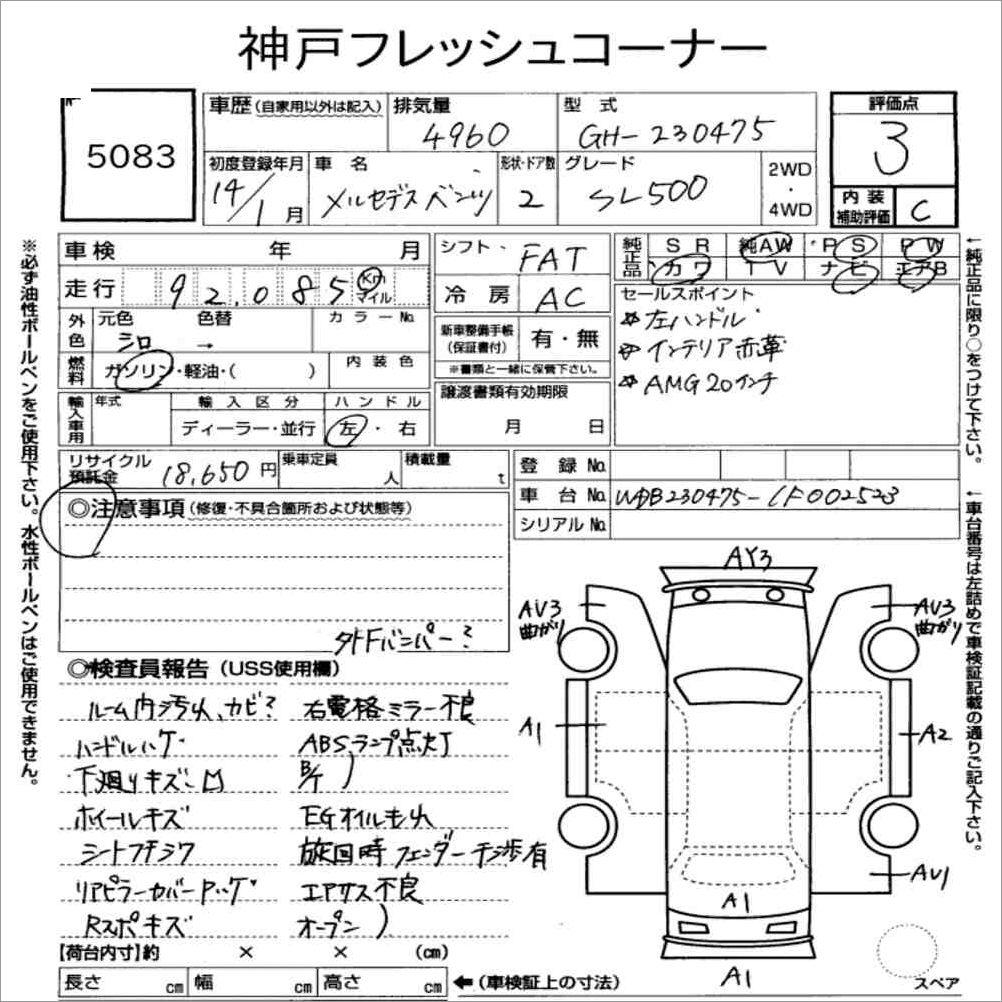 神戸フレッシュコーナー
5083
車歴 (自家用以外は記入)
排気量
4960
型式
GH-230475
評価点
3
初度登録年月
14/1月
車名
メルセデスベンツ
形状・ドア数
2
グレード
SL500
2WD
・
4WD
内装
補助評価
C
車検 年 月
走行 92,085 Km
マイル
シフト FAT
冷房 AC
純正品
SR 純AW PS PW
カワ TV ナビ エアB
外色
元色 色替
シロ →
カラーNo.
新車整備手帳
(保証書付)
有・無
※書類と一緒に保管下さい。
セールスポイント
☆左ハンドル
☆インテリア赤革
☆AMG20インチ
燃料
ガソリン・軽油・( )
内装色
輸入車用
年式
輸入区分
ハンドル
ディーラー・並行
左・右
譲渡書類有効期限
月 日
リサイクル
預託金
18,650円
乗車定員
人
積載量
t
登録No.
車台No. WDB230475-1F002523
シリアルNo.
◎注意事項(修復・不具合箇所および状態等)
外Fバンパー?
◎検査員報告(USS使用欄)
ルーム内汚れ、カビ?
ハンドルハゲ
下廻りキズ凹
ホイールキズ
シートフチシワ
リアピラーカバーハゲ
Rスポキズ
右電格ミラー不良
ABSランプ点灯
B/T )
EGオイルモレ
旋回時フェンダー干渉有
エアサス不良
オープン )
【荷台内寸】約 × × (cm)
長さ cm 幅 cm 高さ cm
←(車検証上の寸法)
AY3
AV3
曲がり
AV3
曲がり
A1
A2
AV1
A1
A1
スペア
※必ず油性ボールペンをご使用下さい。水性ボールペンはご使用できません。
←純正品に限り○をつけて下さい。
←車台番号は左詰めで車検証記載の通りご記入下さい。